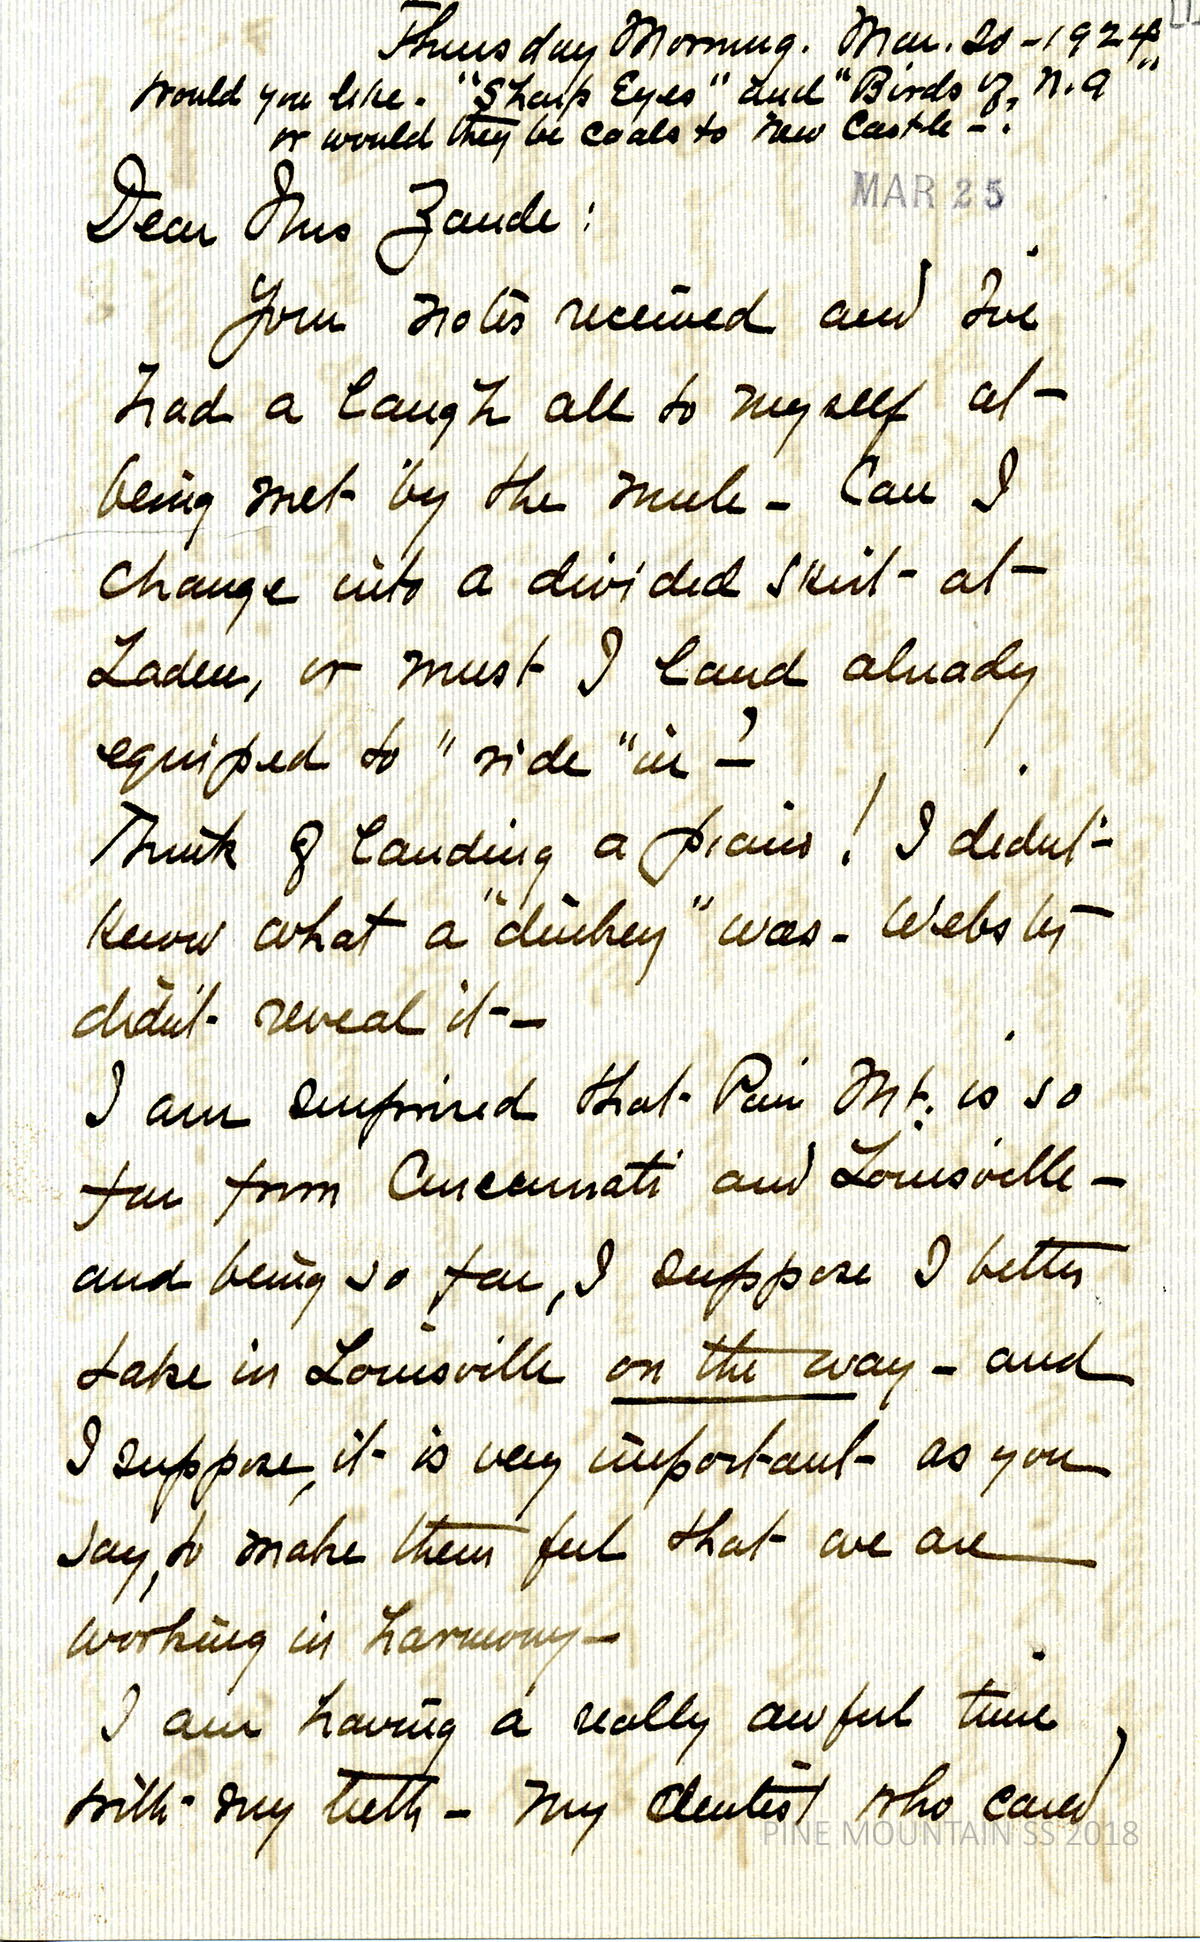 Thursday Morning. Mar. 20 - 1924
Would you like - "Sharp Eyes" and "Birds of N.A"
or would they be coals to New Castle - ?
MAR 25
Dear Miss Zande:
Your notes received and I've
had a laugh all to myself at -
being met by the mule - Can I
change into a divided skirt - at -
Laden, or must I land already
equiped to "ride" in - ?
Think of landing a piano! I didn't -
know what a "dinkey" was - Webster
didn't reveal it -
I am surprised that Pine Mt. is so
far from Cincinnati and Louisville -
and being so far, I suppose I better
take in Louisville on the way - and
I suppose, it is very important as you
say, to make them feel that we are
working in harmony -
I am having a really awful time
with my teeth - my dentist who cared
PINE MOUNTAIN SS 2018